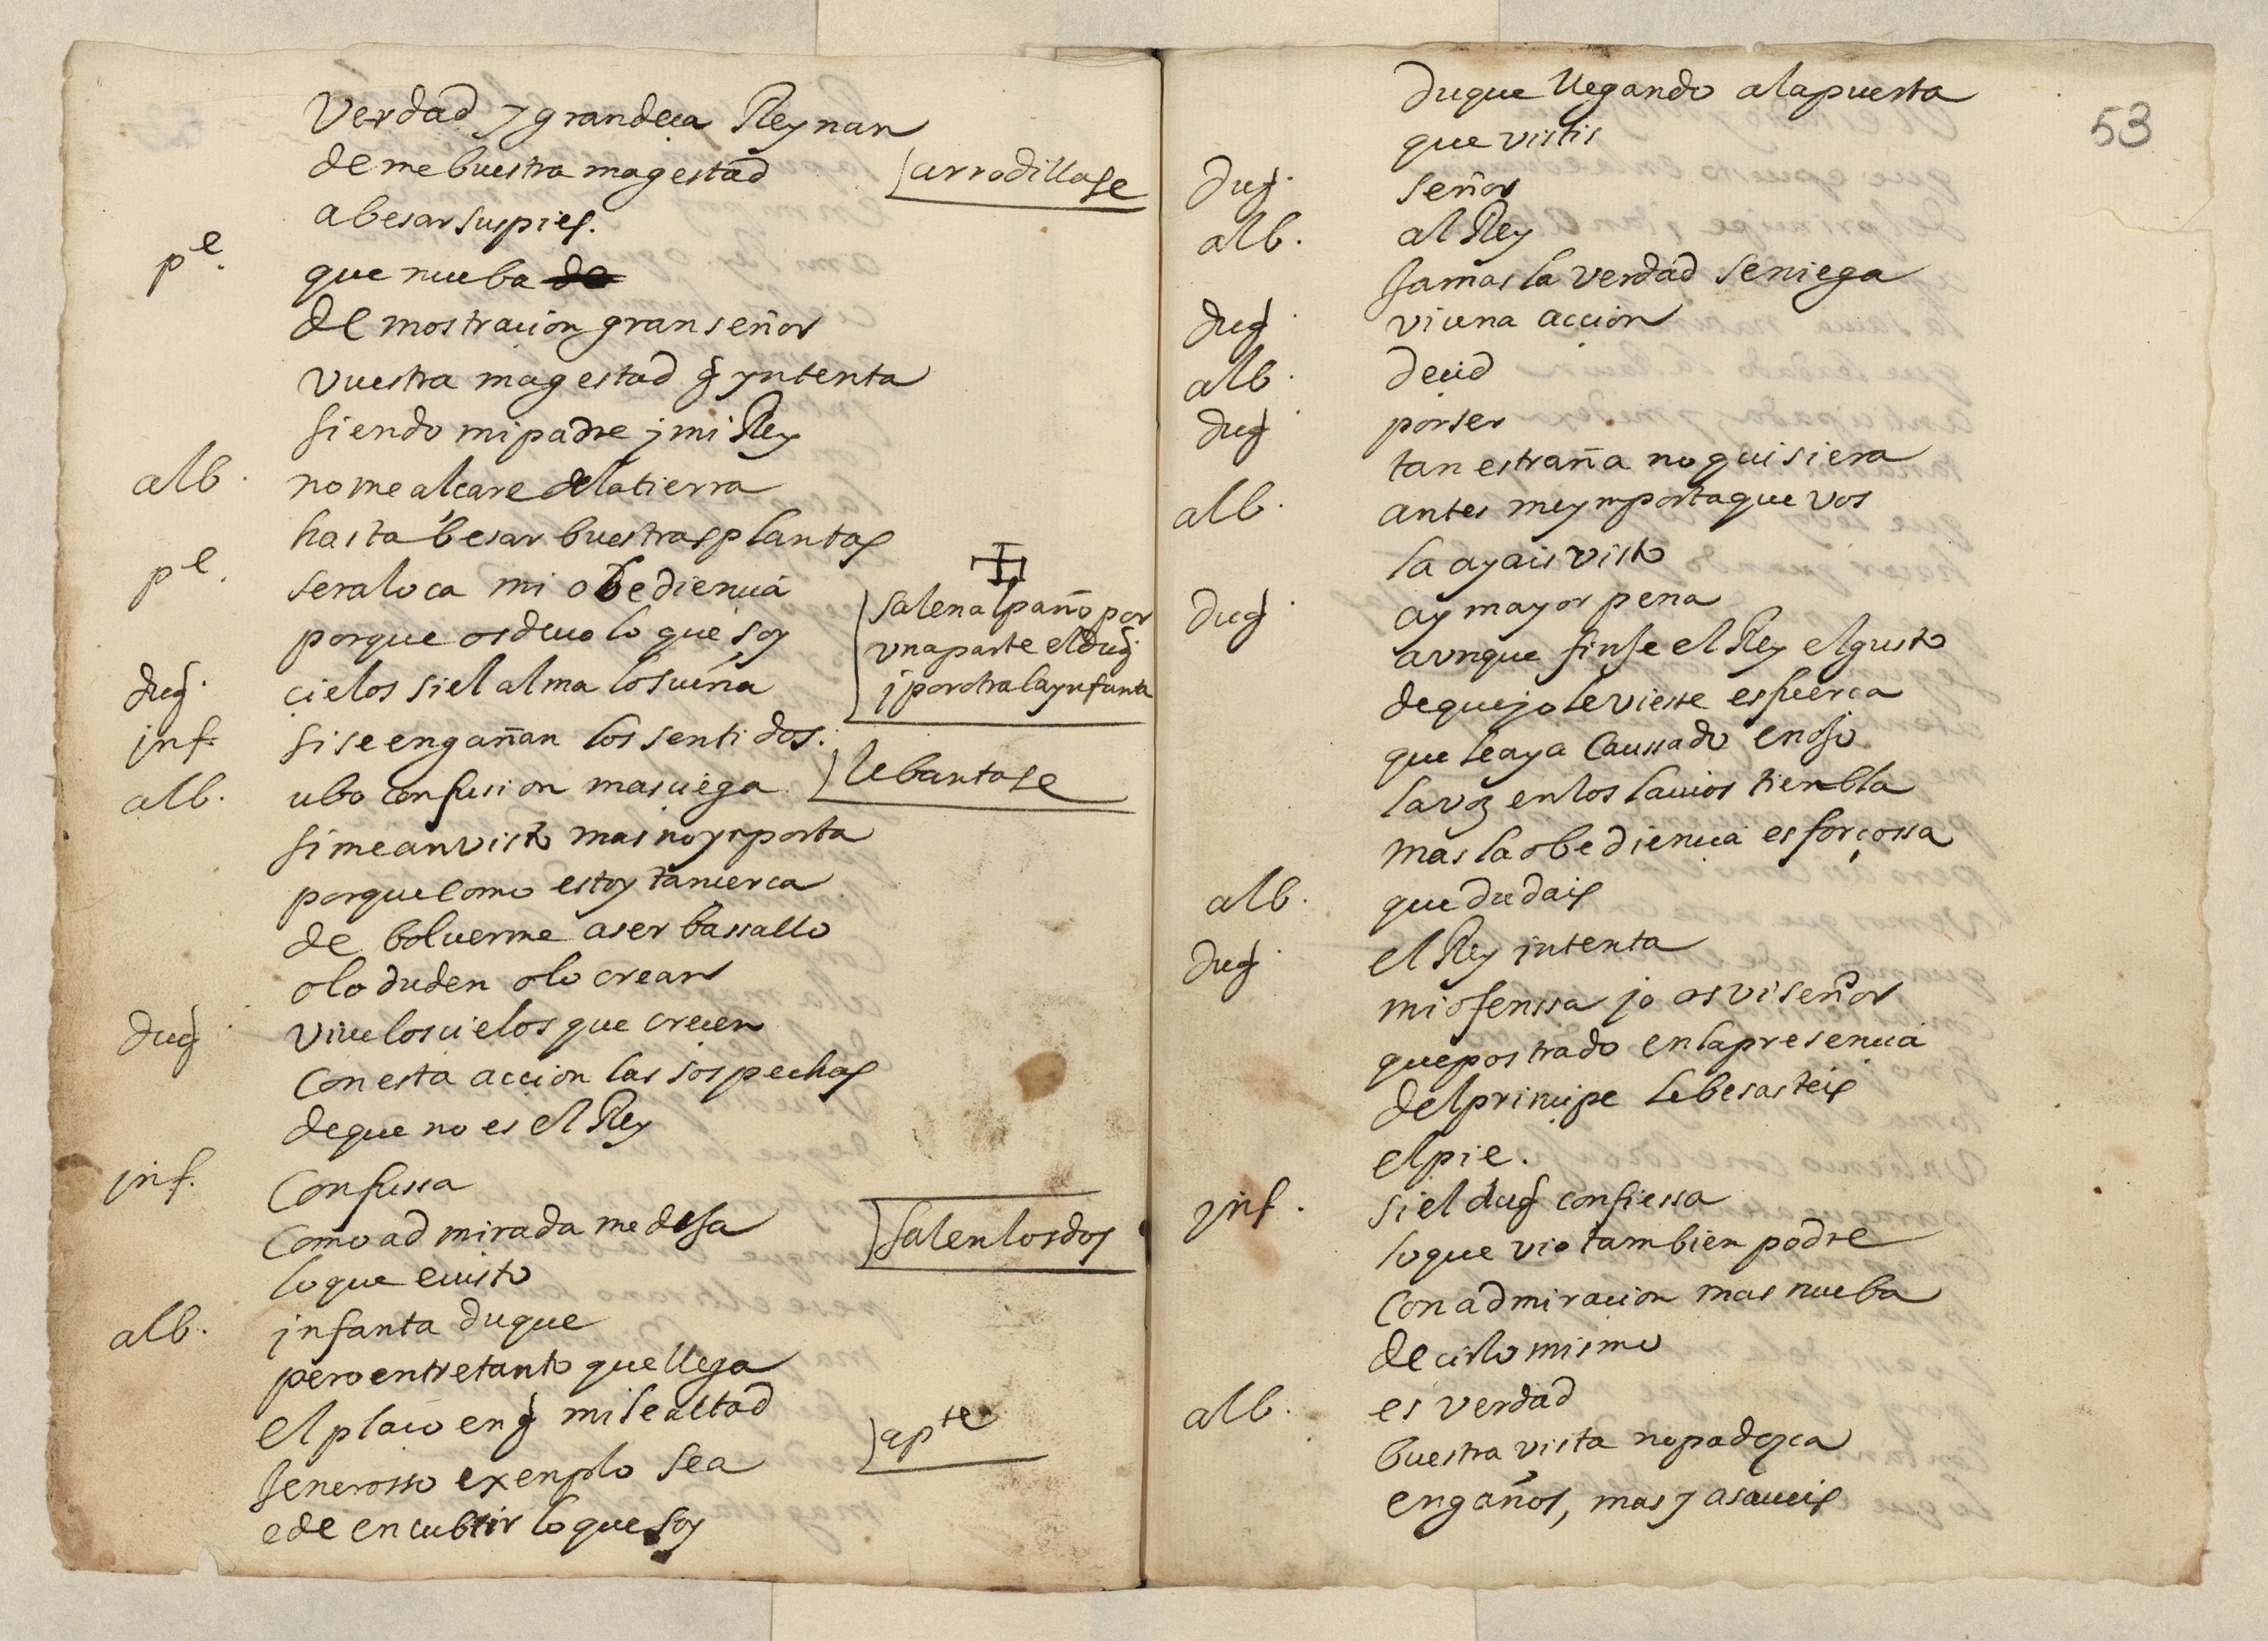 Verdad y grandeca Reynan
deme buestra magestad
arrodillase
a besar sus pies.
pe. que nueba de
demostracion gran señor
vuestra magestad q yntenta
siendo mi padre j mi Rey
alb. no me alcare de la tierra
hasta besar buestras plantas
pe. sera loca mi obediencia
porque os deuo lo que soy
salen al paño por
vna parte el duq
j por otra la ynfanta
duq. cielos si el alma lo sueña
inf. si se engañan los sentidos.
alb. ubo confusion mas ciega
lebantase
si me an visto mas no ynporta
porque como estoy tan cerca
de boluerme a ser bassallo
o lo duden o lo crean
duq. viue los cielos que crecen
con esta accion las sospechas
de que no es el Rey
jnf. Confussa
como admirada me dexa
salen los dos
lo que e uisto
alb. jnfanta duque
pero entre tanto que llega
el placo en q mi lealtad
apte
generosso exenplo sea
e de encubrir lo que soy
53
duque llegando a la puerta
que vistis
duq. señor
alb. al Rey
jamas la verdad se niega
duq. vi una accion
alb. decid
duq. por ser
tan estraña no quisiera
alb. antes me ynporta que vos
la ayais visto
duq. ay mayor pena
avnque finje el Rey el gusto
de que jo le viesse es fuerca
que le aya caussado enojo
la voz en los lauios tienbla
mas la obediencia es forçossa
alb. que dudais
duq. el Rey intenta
mi ofenssa jo os vi señor
que postrado en la presencia
del principe le besasteis
el pie.
ynf. si el duq confiessa
lo que vio tambien podre
con admiracion mas nueba
decir lo mismo
alb. es verdad
buestra vista no padezca
engaños, mas y a saueis